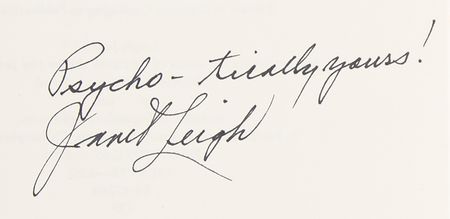 Psycho - tically yours!
Janet Leigh